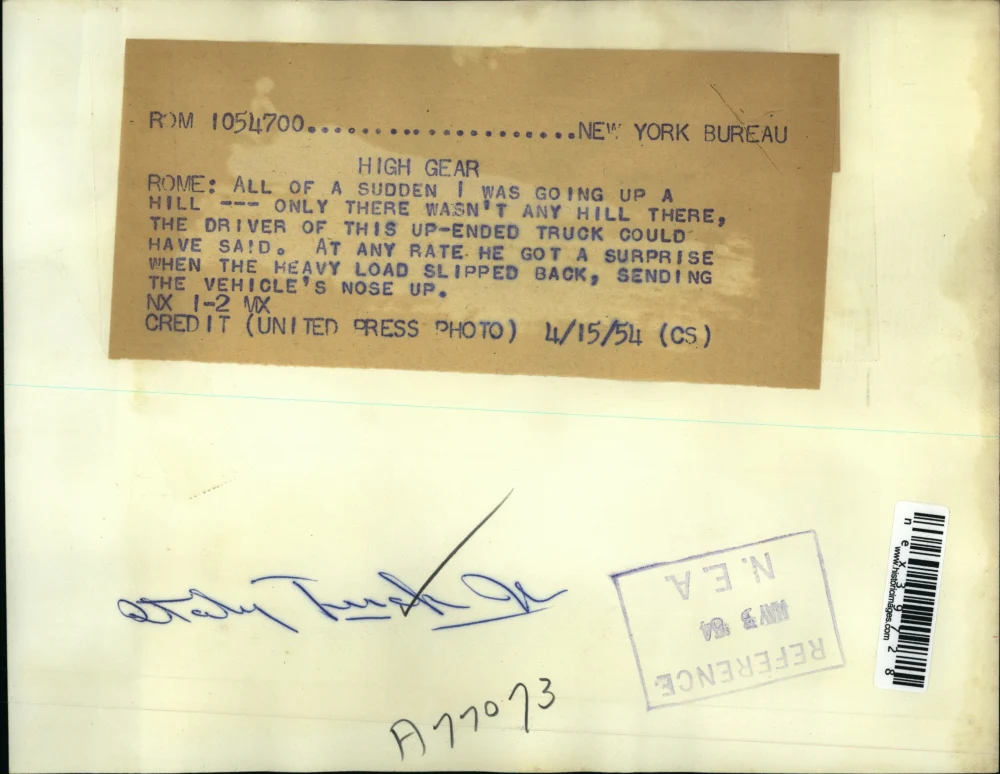 ROM 1054700.......................NEW YORK BUREAU
HIGH GEAR
ROME: ALL OF A SUDDEN I WAS GOING UP A
HILL --- ONLY THERE WASN'T ANY HILL THERE,
THE DRIVER OF THIS UP-ENDED TRUCK COULD
HAVE SAID. AT ANY RATE HE GOT A SURPRISE
WHEN THE HEAVY LOAD SLIPPED BACK, SENDING
THE VEHICLE'S NOSE UP.
NX 1-2 MX
CREDIT (UNITED PRESS PHOTO) 4/15/54 (CS)
REFERENCE
MAY 3 '54
N.E.A
A77073
nex39728
www.historicimages.com